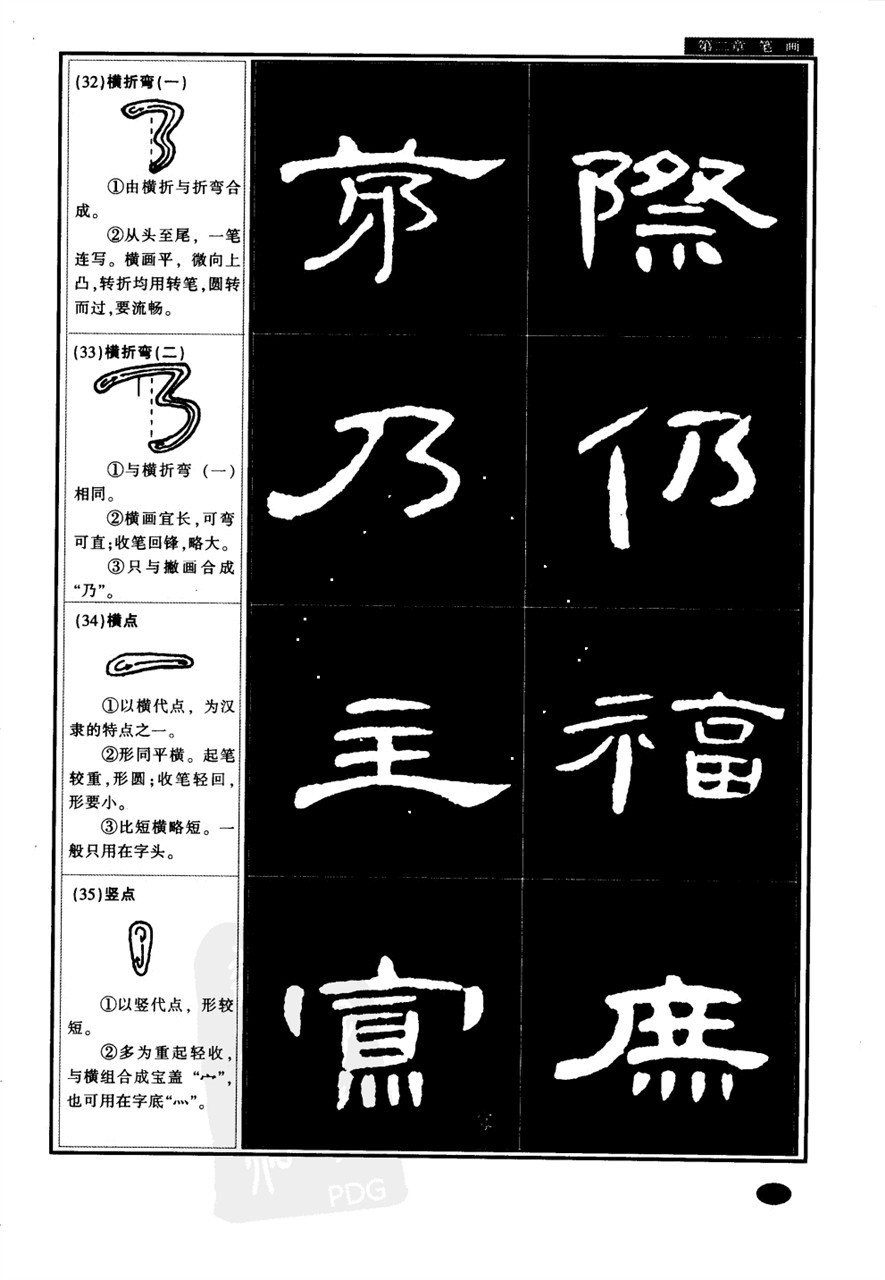 第二章 笔 画
(32)横折弯(一)
①由横折与折弯合
成。
②从头至尾，一笔
连写。横画平，微向上
凸,转折均用转笔,圆转
而过,要流畅。
際
(33)横折弯(二)
①与横折弯 (一)
相同。
②横画宜长,可弯
可直;收笔回锋,略大。
③只与撇画合成
“乃”。
乃 仍
(34)横点
①以横代点，为汉
隶的特点之一。
②形同平横。起笔
较重,形圆;收笔轻回,
形要小。
③比短横略短。一
般只用在字头。
主 福
(35)竖点
①以竖代点，形较
短。
②多为重起轻收,
与横组合成宝盖“宀”,
也可用在字底“灬”。
寫 庶
PDG